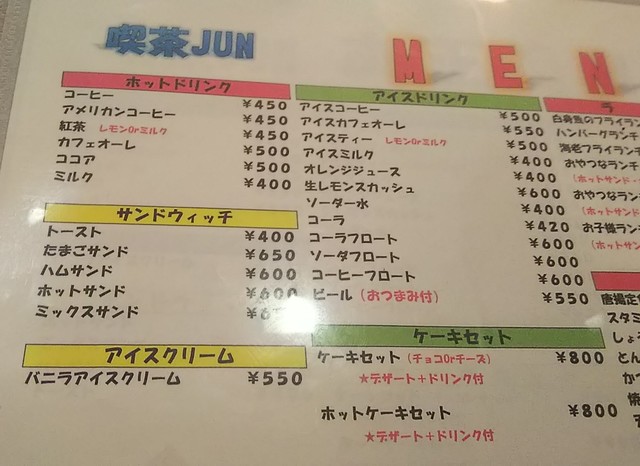 喫茶JUN
MEN
ホットドリンク
コーヒー ¥450
アメリカンコーヒー ¥450
紅茶 レモンOrミルク ¥450
カフェオーレ ¥500
ココア ¥500
ミルク ¥400
サンドウィッチ
トースト ¥400
たまごサンド ¥650
ハムサンド ¥600
ホットサンド ¥600
ミックスサンド
アイスクリーム
バニラアイスクリーム ¥550
アイスドリンク
アイスコーヒー ¥500
アイスカフェオーレ ¥550
アイスティー レモンOrミルク ¥500
アイスミルク ¥400
オレンジジュース ¥400
生レモンスカッシュ ¥600
ソーダー水 ¥400
コーラ ¥420
コーラフロート ¥600
ソーダフロート ¥600
コーヒーフロート ¥600
ビール (おつまみ付) ¥550
ケーキセット
ケーキセット (チョコOrチーズ) ¥800
★デザート+ドリンク付
ホットケーキセット ¥800
★デザート+ドリンク付
ラ
白身魚のフライラン
ハンバーグランチ
海老フライランチ
おやつなランチ
(ホットサンド・
おやつなランチ
(ホットサンド
お子様ランチ
(ホットサン
唐揚定食
スタミ
しょ
とん
かつ
焼